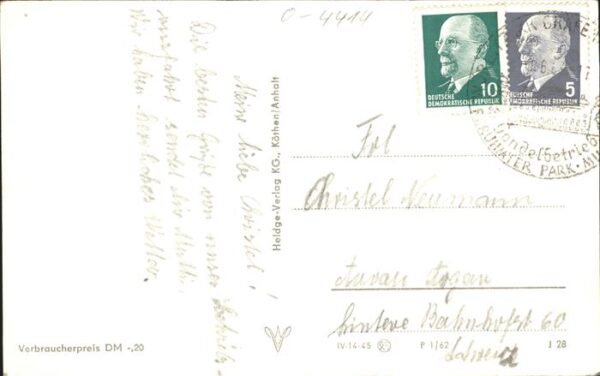 O-4414
Meine liebe Christel!
Die besten Grüße von unser Betriebs-
ausfahrt sendet Dir Mutti.
Wir haben herrliches Wetter.
Heldge-Verlag KG., Köthen/Anhalt
Verbraucherpreis DM -,20
10
DEUTSCHE
DEMOKRATISCHE REPUBLIK
5
DEUTSCHE
DEMOKRATISCHE REPUBLIK
PARK
Frl
Christel Neumann
Hintere Bahnhofst 60
Schweiz
IV-14-45
P 1/62
J 28